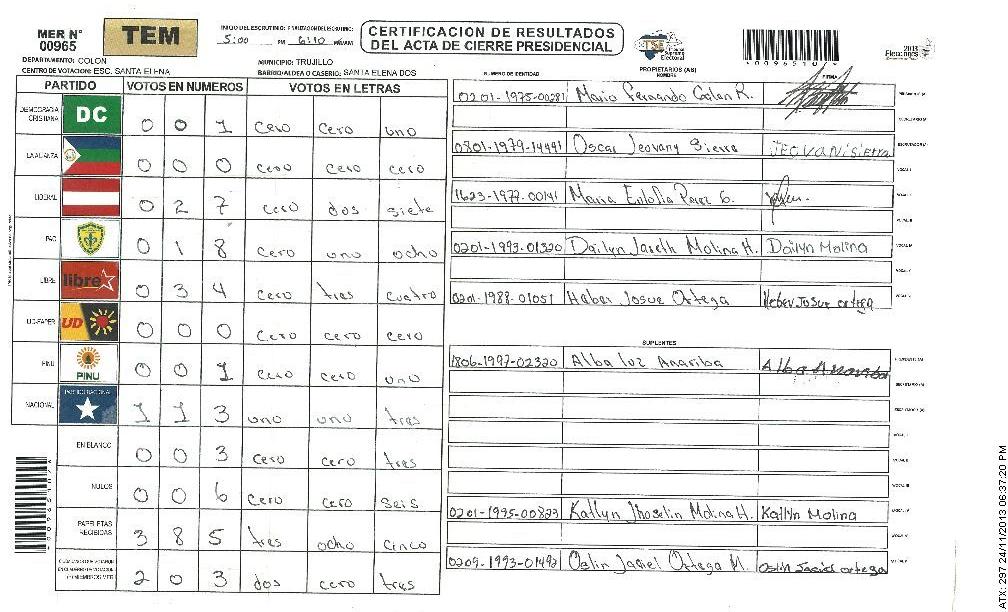 MER N° 00965
TEM
INICIO DEL ESCRUTINIO: FINALIZACION DEL ESCRUTINIO:
5:00 PM 6:10 PM/AM
CERTIFICACION DE RESULTADOS
DEL ACTA DE CIERRE PRESIDENCIAL
TSE
Tribunal Supremo Electoral
Elecciones 2013
DEPARTAMENTO: COLON
MUNICIPIO: TRUJILLO
CENTRO DE VOTACION: ESC. SANTA ELENA
BARRIO/ALDEA O CASERIO: SANTA ELENA DOS
NUMERO DE IDENTIDAD PROPIETARIOS (AS) NOMBRE FIRMA
PARTIDO VOTOS EN NUMEROS VOTOS EN LETRAS
DEMOCRACIA CRISTIANA DC 0 0 1 cero cero uno
LA ALIANZA 0 0 0 cero cero cero
LIBERAL 0 2 7 cero dos siete
PAC 0 1 8 cero uno ocho
LIBRE libre 0 3 4 cero tres cuatro
UD-FAPER UD 0 0 0 cero cero cero
PINU PINU 0 0 1 cero cero uno
NACIONAL PARTIDO NACIONAL 1 1 3 uno uno tres
EN BLANCO 0 0 3 cero cero tres
NULOS 0 0 6 cero cero seis
PAPELETAS RECIBIDAS 3 8 5 tres ocho cinco
2 0 3 dos cero tres
0201-1975-00281 Mario Fernando Galan R.
0801-1979-14491 Oscar Jeovany Sierra JEOVANI Sierra
1623-1977-00141 Maria Perez G.
0201-1993-01320 Dailyn Jareth Molina H. Dailyn Molina
0201-1988-01051 Heber Josue Ortega Heber Josue ortega
SUPLENTES
1806-1997-02320 Alba luz Anariba Alba Anariba
0201-1995-00823 Katlyn Jhoselin Molina H. Katlyn Molina
0209-1993-01492 Oslin Jaciel Ortega M. Oslin Jaciel ortega
ATX: 297 24/11/2013 06:37:20 PM